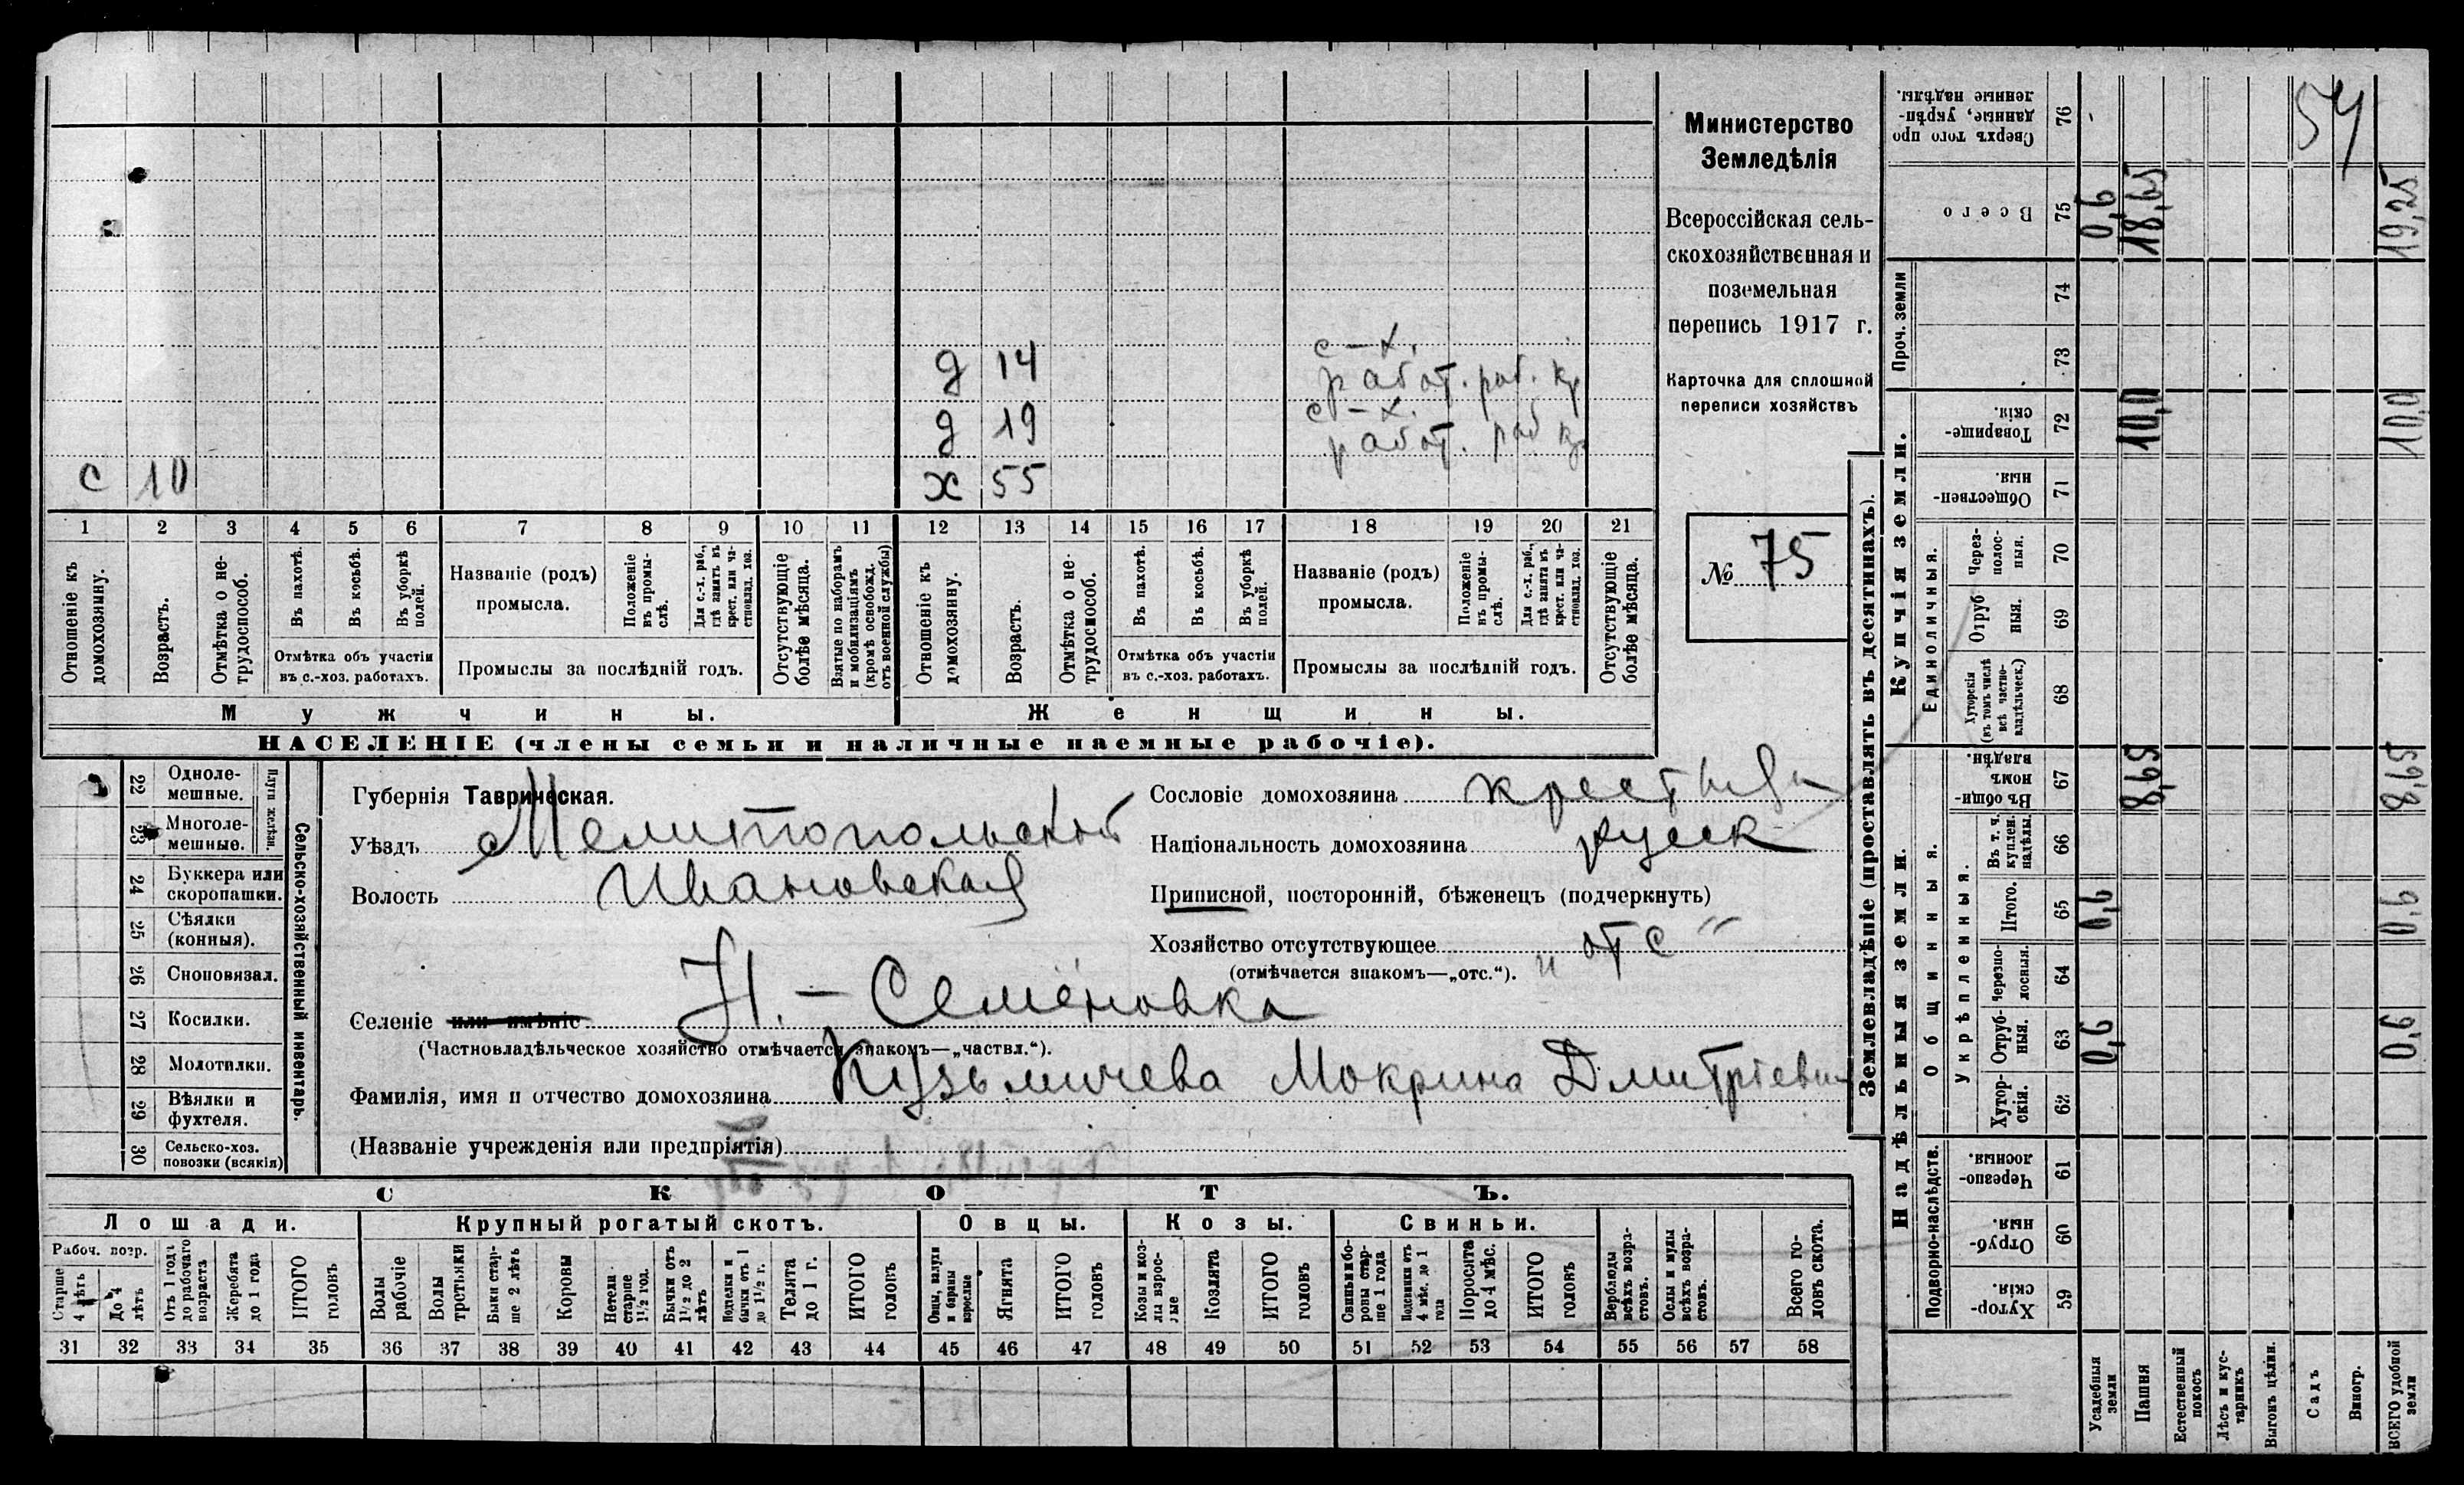 54
Министерство
Земледѣлія
Всероссійская сель-
скохозяйственная и
поземельная
перепись 1917 г.
Карточка для сплошной
переписи хозяйствъ
№ 75
с 10
д 14 с-х. работ. раб.
д 19 с-х. работ. раб
х 55
1 2 3 4 5 6 7 8 9 10 11 12 13 14 15 16 17 18 19 20 21
Отношеніе къ домохозяину.
Возрастъ.
Отмѣтка о не-трудоспособ.
Въ пахотѣ.
Въ косьбѣ.
Въ уборкѣ полей.
Отмѣтка объ участіи
въ с.-хоз. работахъ.
Названіе (родъ)
промысла.
Положеніе въ промы-слѣ.
Для с.-х. раб., гдѣ занятъ въ крест. или ча-стновлад. хоз.
Промыслы за послѣдній годъ.
Отсутствующіе болѣе мѣсяца.
Взятые по наборамъ и мобилизаціямъ (кромѣ освобожд. отъ военной службы)
Отношеніе къ домохозяину.
Возрастъ.
Отмѣтка о не-трудоспособ.
Въ пахотѣ.
Въ косьбѣ.
Въ уборкѣ полей.
Отмѣтка объ участіи
въ с.-хоз. работахъ.
Названіе (родъ)
промысла.
Положеніе въ промы-слѣ.
Для с.-х. раб., гдѣ занята въ крест. или ча-стновлад. хоз.
Промыслы за послѣдній годъ.
Отсутствующіе болѣе мѣсяца.
Мужчины.
Женщины.
НАСЕЛЕНІЕ (члены семьи и наличные наемные рабочіе).
Сельско-хозяйственный инвентарь.
Плуги желѣзн.
22 Одноле-мешные.
23 Многоле-мешные.
24 Буккера или скоропашки.
25 Сѣялки (конныя).
26 Сноповязал.
27 Косилки.
28 Молотилки.
29 Вѣялки и фухтеля.
30 Сельско-хоз. повозки (всякія)
Губернія Таврическая.
Уѣздъ Мелитопольскій
Волость Ивановская
Сословіе домохозяина
Національность домохозяина русск
Приписной, посторонній, бѣженецъ (подчеркнуть)
Хозяйство отсутствующее „отс“
(отмѣчается знакомъ—„отс.“).
Селеніе или имѣніе Н.-Семёновка
(Частновладѣльческое хозяйство отмѣчается знакомъ—„частвл.“).
Фамилія, имя и отчество домохозяина Кузьмичева Мокрина Дмитріевна
(Названіе учрежденія или предпріятія)
СКОТЪ.
Лошади.
Крупный рогатый скотъ.
Овцы.
Козы.
Свиньи.
Рабоч. возр.
Старше 4 лѣтъ
До 4 лѣтъ
Отъ 1 года до рабочаго возраста
Жеребята до 1 года
ИТОГО головъ
Волы рабочіе
Волы третьяки
Быки стар-ше 2 лѣтъ
Коровы
Нетели старше 1½ год.
Бычки отъ 1½ до 2 лѣтъ
Подтелки и бычки отъ 1 до 1½ г.
Телята до 1 г.
ИТОГО головъ
Овцы, валухи и бараны взрослые
Ягнята
ИТОГО головъ
Козы и коз-лы взрос-лые
Козлята
ИТОГО головъ
Свиньи и бо-ровы стар-ше 1 года
Подсвинки отъ 4 мѣс. до 1 года
Поросята до 4 мѣс.
ИТОГО головъ
Верблюды всѣхъ возра-стовъ.
Ослы и мулы всѣхъ возра-стовъ.
Всего го-ловъ скота.
31 32 33 34 35 36 37 38 39 40 41 42 43 44 45 46 47 48 49 50 51 52 53 54 55 56 57 58
Землевладѣніе (проставлять въ десятинахъ).
Надѣльныя земли.
Купчія земли.
Проч. земли
Подворно-наслѣдств.
Общинныя.
Укрѣпленныя.
Единоличныя.
59 Хутор-скія.
60 Отруб-ныя.
61 Черезпо-лосныя.
62 Хутор-скія.
63 Отруб-ныя. 0,6 0,6
64 Черезпо-лосныя.
65 Итого. 0,6 0,6
66 Въ т. ч. куплен. надѣлы.
67 Въ общин-номъ владѣн. 8,65 8,65
68 Хуторскія (въ томъ числѣ всѣ частно-владѣльческ.)
69 Отруб ныя.
70 Через-полос-ныя.
71 Обществен-ныя
72 Товарище-скія. 10,0 10,0
73
74
75 Всего 0,6 18,65 19,25
76 Сверхъ того про-данные, укрѣп-ленные надѣлы.
Усадебныя земли
Пашня
Естественный покосъ
Лѣсъ и кус-тарникъ
Выгонъ цѣлин.
Садъ
Виногр.
ВСЕГО удобной земли